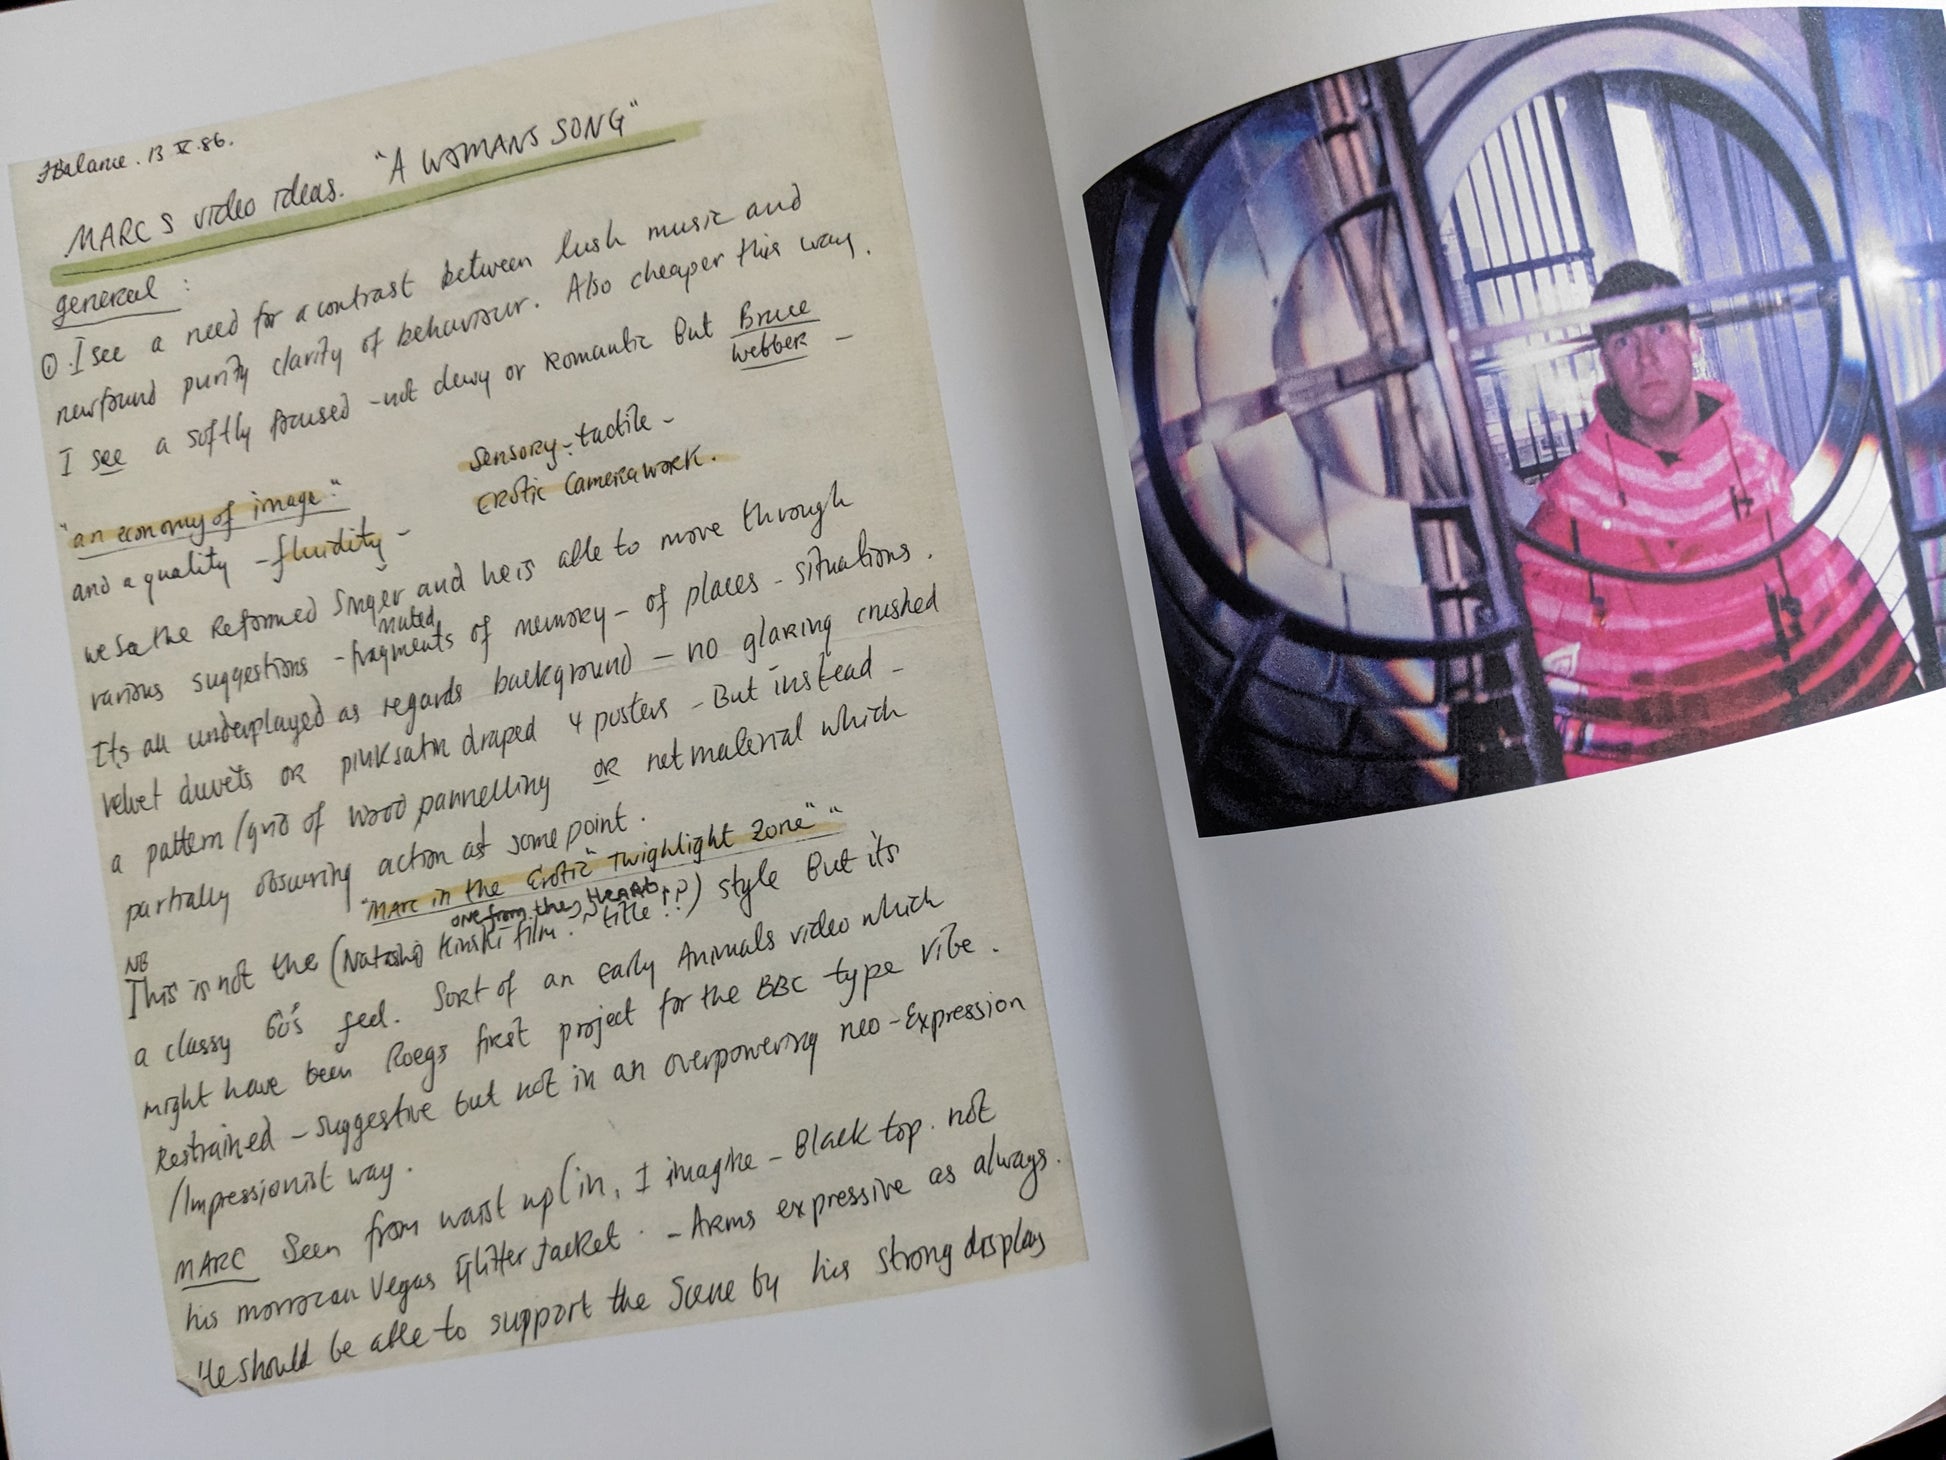 JBalance. 13 X. 86.
MARC S video ideas. "A WOMANS SONG"
general :
① . I see a need for a contrast between lush music and
newfound purity clarity of behaviour. Also cheaper this way.
I see a softly focused - not dewy or Romantic But Bruce
Webber -
Sensory - tactile -
Erotic Camerawork.
"an economy of image"
and a quality - fluidity -
we see the Reformed Singer and he is able to move through
muted
various suggestions - fragments of memory - of places - situations.
It's all underplayed as regards background - no glaring crushed
velvet duvets or pink satin draped 4 posters - But instead -
a pattern / grid of wood pannelling OR net material which
partially obscuring action at some point.
"Marc in the Erotic "Twighlight Zone" "
one from the HEART
NB
This is not the (Natashi Kinski film. ~ title !?) style But its
a classy 60's feel. Sort of an Early Animals video which
might have been Roegs first project for the BBC type vibe.
Restrained - suggestive but not in an overpowering neo-Expression
/Impressionist way.
MARC Seen from waist up (in, I imagine - Black top. not
his morrocan Vegas Glitter Jacket. - Arms expressive as always.
He should be able to support the Scene by his strong display